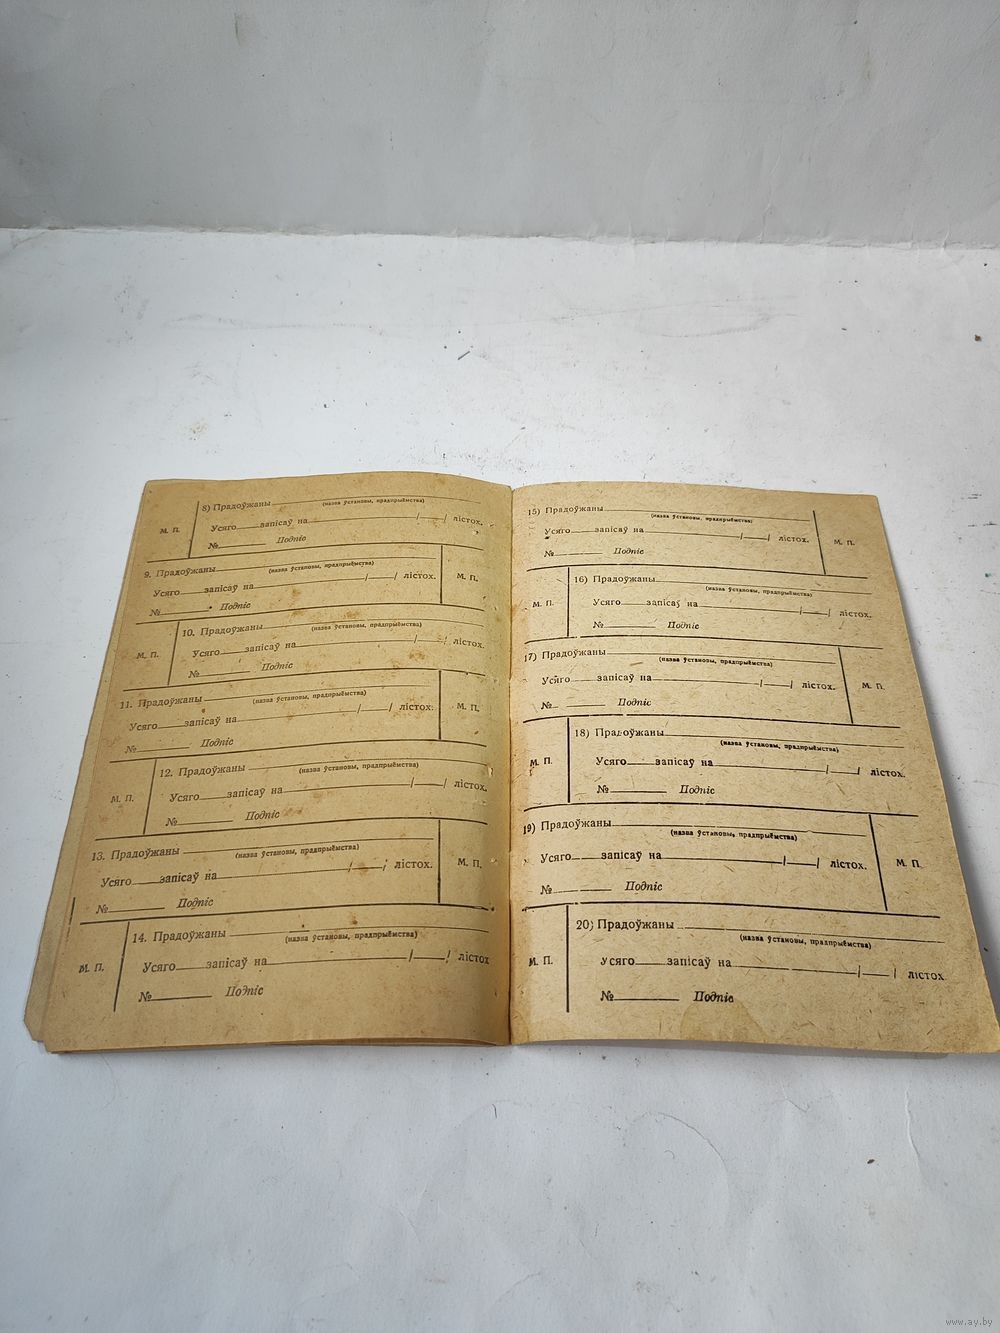 8) Прадоўжаны
(назва ўстановы, прадпрыёмства)
М. П.
Усяго запісаў на / / лістох.
№ Подпіс
9. Прадоўжаны
(назва ўстановы, прадпрыёмства)
Усяго запісаў на / / лістох.
М. П.
№ Подпіс
10. Прадоўжаны
(назва ўстановы, прадпрыёмства)
М. П.
Усяго запісаў на / / лістох.
№ Подпіс
11. Прадоўжаны
(назва ўстановы, прадпрыёмства)
Усяго запісаў на / / лістох.
М. П.
№ Подпіс
12. Прадоўжаны
(назва ўстановы, прадпрыёмства)
М. П.
Усяго запісаў на / / лістох.
№ Подпіс
13. Прадоўжаны
(назва ўстановы, прадпрыёмства)
Усяго запісаў на / / лістох.
М. П.
№ Подпіс
14. Прадоўжаны
(назва ўстановы, прадпрыёмства)
М. П.
Усяго запісаў на / / лістох
№ Подпіс
15) Прадоўжаны
(назва ўстановы, прадпрыёмства)
Усяго запісаў на / / лістох.
М. П.
№ Подпіс
16) Прадоўжаны
(назва ўстановы, прадпрыёмства)
М. П.
Усяго запісаў на / / лістох.
№ Подпіс
17) Прадоўжаны
(назва ўстановы, прадпрыёмства)
Усяго запісаў на / / лістох.
М. П.
№ Подпіс
18) Прадоўжаны
(назва ўстановы, прадпрыёмства)
М. П.
Усяго запісаў на / / лістох.
№ Подпіс
19) Прадоўжаны
(назва ўстановы, прадпрыёмства)
Усяго запісаў на / / лістох.
М. П.
№ Подпіс
20) Прадоўжаны
(назва ўстановы, прадпрыёмства)
М. П.
Усяго запісаў на / / лістох.
№ Подпіс
www.ay.by